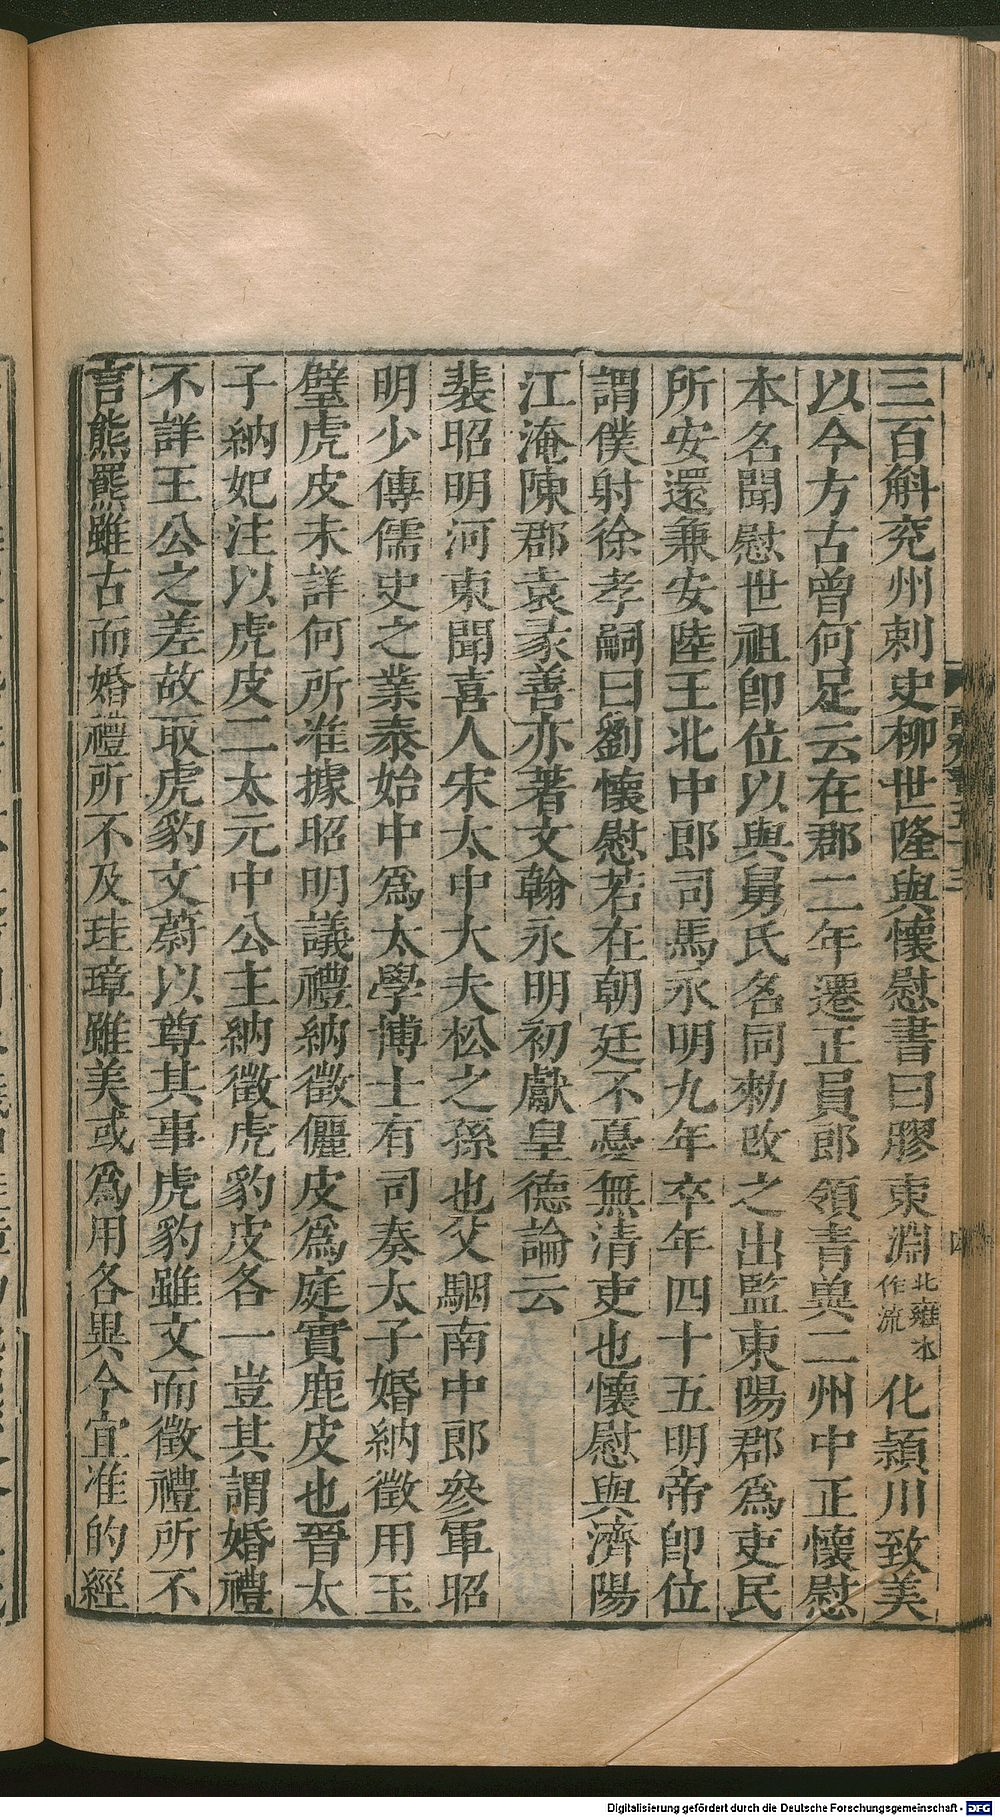 三百斛兖州刺史柳世隆與懷慰書曰膠東淵北雍本作流化潁川致美
以今方古曾何足云在郡二年遷正員郎領青兾二州中正懷慰
本名聞慰世祖即位以與舅氏名同勑改之出監東陽郡爲吏民
所安還兼安陸王北中郎司馬永明九年卒年四十五明帝即位
謂僕射徐孝嗣曰劉懷慰若在朝廷不憂無清吏也懷慰與濟陽
江淹陳郡袁彖善亦著文翰永明初獻皇德論云
裴昭明河東聞喜人宋太中大夫松之孫也父駰南中郎參軍昭
明少傳儒史之業泰始中爲太學博士有司奏太子婚納徵用玉
璧虎皮未詳何所准據昭明議禮納徵儷皮爲庭實鹿皮也晉太
子納妃注以虎皮二太元中公主納徵虎豹皮各一豈其謂婚禮
不詳王公之差故取虎豹文蔚以尊其事虎豹雖文而徵禮所不
言熊羆雖古而婚禮所不及珪璋雖美或爲用各異今宜准的經
Digitalisierung gefördert durch die Deutsche Forschungsgemeinschaft - DFG